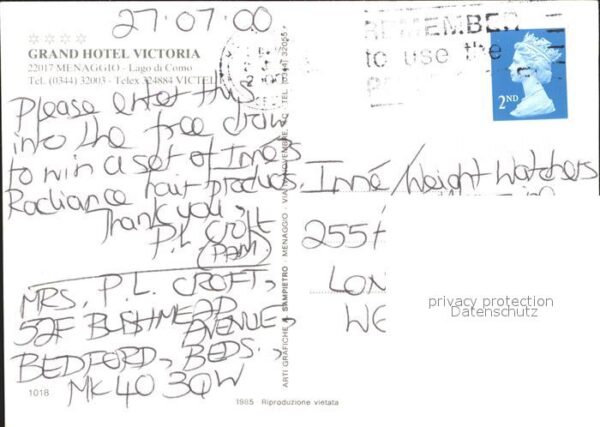 27.07.00
GRAND HOTEL VICTORIA
22017 MENAGGIO - Lago di Como
Tel. (0344) 32003 - Telex 324884 VICTEL
Please enter this
into the free draw
to win a set of Inné's
Radiance hair products.
Thank you,
P.L. Croft
(PAM)
MRS. P.L. CROFT,
52F BUSHMEAD
AVENUE,
BEDFORD, BEDS.,
MK40 3QW
1018
1985 Riproduzione vietata
ARTI GRAFICHE SAMPIETRO - MENAGGIO - VIA IV NOVEMBRE, Tel. (0344) 32055
REMEMBER
to use the
2ND
Inné/Weight Watchers
255
LON
WE
privacy protection
Datenschutz